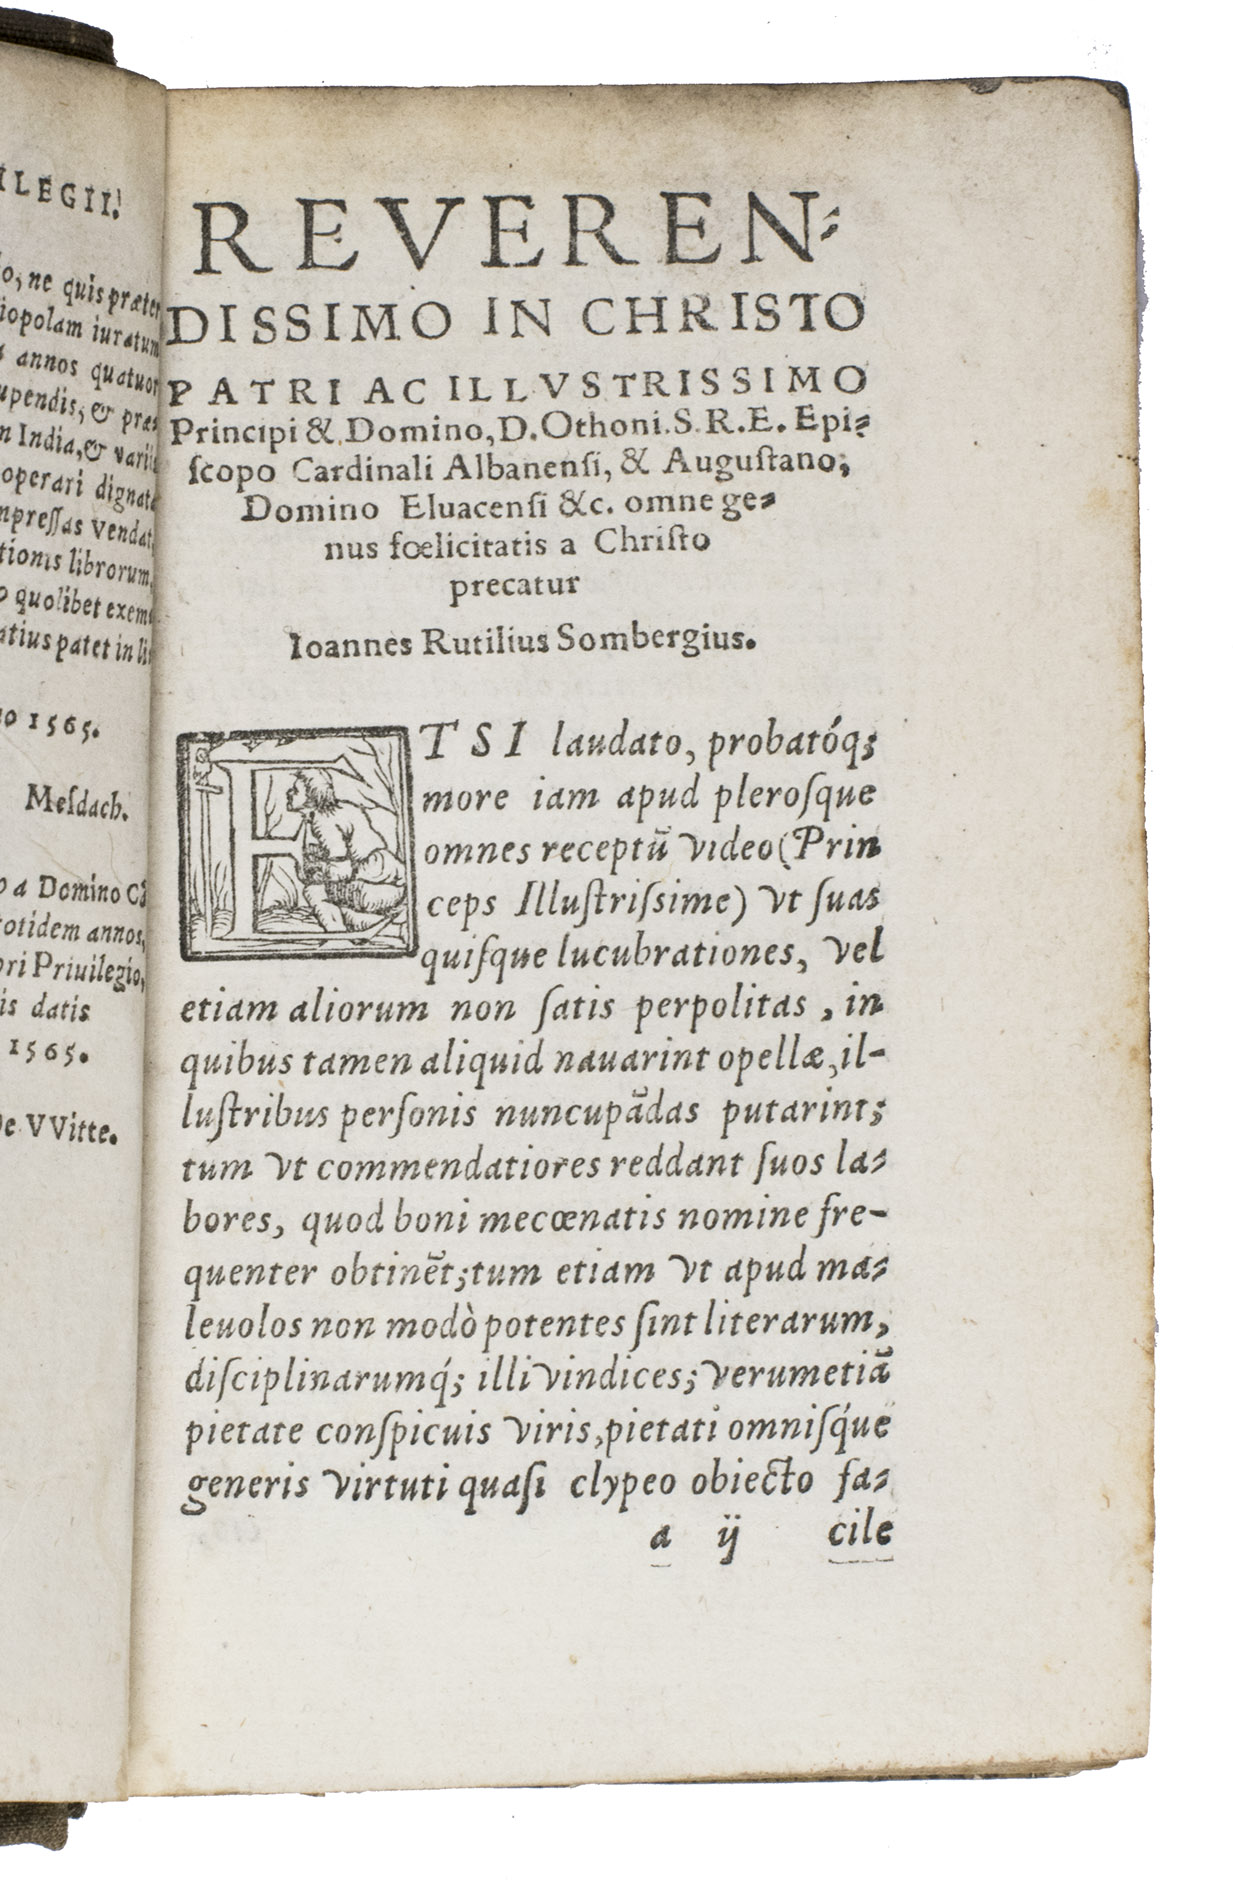 ILEGII.
ne quis præter
iuratum
annos quatuor
&
India, & variis
operari dignat
Vendat,
librorum,
quolibet exem
patet in li
1565.
Mesdach.
a Domino
annos,
Priuilegio,
datis
1565.
De VVitte.
REVEREN-
DISSIMO IN CHRISTO
PATRI AC ILLVSTRISSIMO
Principi & Domino, D. Othoni. S. R. E. Epi-
ſcopo Cardinali Albanenſi, & Auguſtano,
Domino Eluacenſi &c. omne ge-
nus fœlicitatis a Chriſto
precatur
Ioannes Rutilius Sombergius.
ETSI laudato, probatóq;
more iam apud pleroſque
omnes receptũ video (Prin
ceps Illuſtriſsime) vt ſuas
quiſque lucubrationes, vel
etiam aliorum non ſatis perpolitas, in
quibus tamen aliquid nauarint opellæ, il-
luſtribus perſonis nuncupãdas putarint;
tum vt commendatiores reddant ſuos la-
bores, quod boni mecœnatis nomine fre-
quenter obtinẽt; tum etiam vt apud ma-
leuolos non modò potentes ſint literarum,
diſciplinarumq́; illi vindices; verumetiã
pietate conſpicuis viris, pietati omniſq́ue
generis virtuti quaſi clypeo obiecto fa-
a ij cile